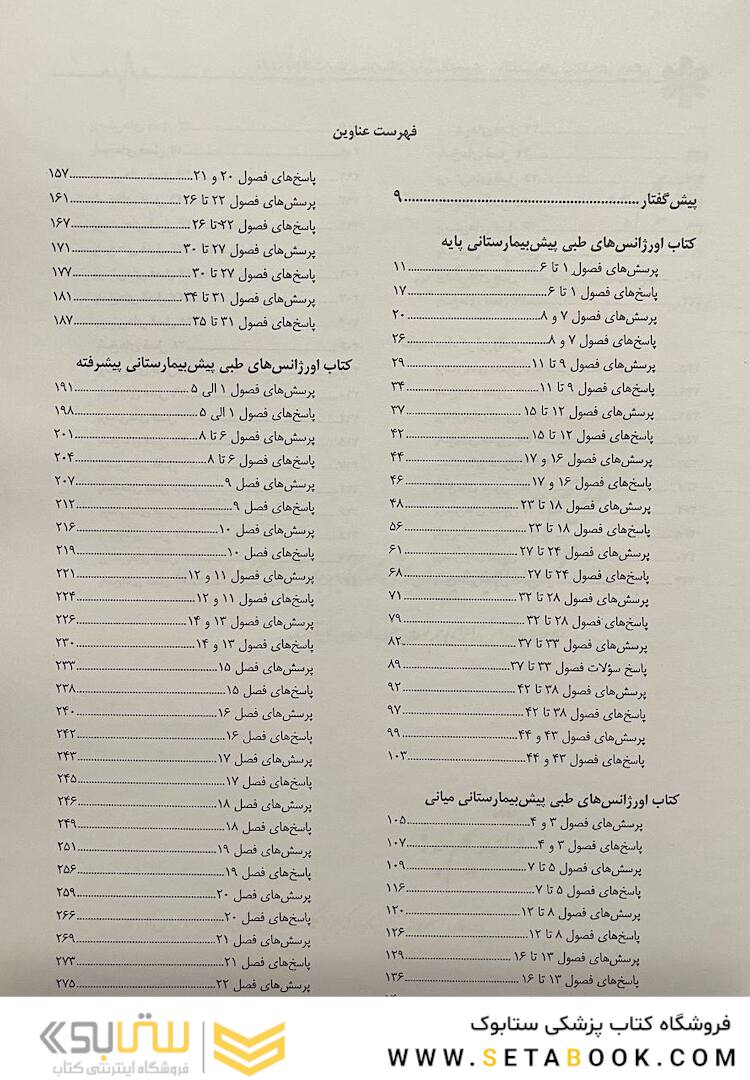 فهرست عناوین
پیش‌گفتار ۹
کتاب اورژانس‌های طبی پیش‌بیمارستانی پایه
پرسش‌های فصول ۱ تا ۶ ۱۱
پاسخ‌های فصول ۱ تا ۶ ۱۷
پرسش‌های فصول ۷ و ۸ ۲۰
پاسخ‌های فصول ۷ و ۸ ۲۶
پرسش‌های فصول ۹ تا ۱۱ ۲۹
پاسخ‌های فصول ۹ تا ۱۱ ۳۴
پرسش‌های فصول ۱۲ تا ۱۵ ۳۷
پاسخ‌های فصول ۱۲ تا ۱۵ ۴۲
پرسش‌های فصول ۱۶ و ۱۷ ۴۴
پاسخ‌های فصول ۱۶ و ۱۷ ۴۶
پرسش‌های فصول ۱۸ تا ۲۳ ۴۸
پاسخ‌های فصول ۱۸ تا ۲۳ ۵۶
پرسش‌های فصول ۲۴ تا ۲۷ ۶۱
پاسخ‌های فصول ۲۴ تا ۲۷ ۶۸
پرسش‌های فصول ۲۸ تا ۳۲ ۷۱
پاسخ‌های فصول ۲۸ تا ۳۲ ۷۹
پرسش‌های فصول ۳۳ تا ۳۷ ۸۲
پاسخ سؤلات فصول ۳۳ تا ۳۷ ۸۹
پرسش‌های فصول ۳۸ تا ۴۲ ۹۲
پاسخ‌های فصول ۳۸ تا ۴۲ ۹۷
پرسش‌های فصول ۴۳ و ۴۴ ۹۹
پاسخ‌های فصول ۴۳ و ۴۴ ۱۰۳
کتاب اورژانس‌های طبی پیش‌بیمارستانی میانی
پرسش‌های فصول ۳ و ۴ ۱۰۵
پاسخ‌های فصول ۳ و ۴ ۱۰۷
پرسش‌های فصول ۵ تا ۷ ۱۰۹
پاسخ‌های فصول ۵ تا ۷ ۱۱۶
پرسش‌های فصول ۸ تا ۱۲ ۱۲۰
پاسخ‌های فصول ۸ تا ۱۲ ۱۲۶
پرسش‌های فصول ۱۳ تا ۱۶ ۱۲۹
پاسخ‌های فصول ۱۳ تا ۱۶ ۱۳۶
پاسخ‌های فصول ۲۰ و ۲۱ ۱۵۷
پرسش‌های فصول ۲۲ تا ۲۶ ۱۶۱
پاسخ‌های فصول ۲۲ تا ۲۶ ۱۶۷
پرسش‌های فصول ۲۷ تا ۳۰ ۱۷۱
پاسخ‌های فصول ۲۷ تا ۳۰ ۱۷۷
پرسش‌های فصول ۳۱ تا ۳۴ ۱۸۱
پاسخ‌های فصول ۳۱ تا ۳۵ ۱۸۷
کتاب اورژانس‌های طبی پیش‌بیمارستانی پیشرفته
پرسش‌های فصول ۱ الی ۵ ۱۹۱
پاسخ‌های فصول ۱ الی ۵ ۱۹۸
پرسش‌های فصول ۶ تا ۸ ۲۰۱
پاسخ‌های فصول ۶ تا ۸ ۲۰۴
پرسش‌های فصل ۹ ۲۰۷
پاسخ‌های فصل ۹ ۲۱۲
پرسش‌های فصل ۱۰ ۲۱۶
پاسخ‌های فصل ۱۰ ۲۱۹
پرسش‌های فصول ۱۱ و ۱۲ ۲۲۱
پاسخ‌های فصول ۱۱ و ۱۲ ۲۲۴
پرسش‌های فصول ۱۳ و ۱۴ ۲۲۶
پاسخ‌های فصول ۱۳ و ۱۴ ۲۳۰
پرسش‌های فصل ۱۵ ۲۳۳
پاسخ‌های فصل ۱۵ ۲۳۸
پرسش‌های فصل ۱۶ ۲۴۰
پاسخ‌های فصل ۱۶ ۲۴۲
پرسش‌های فصل ۱۷ ۲۴۳
پاسخ‌های فصل ۱۷ ۲۴۵
پرسش‌های فصل ۱۸ ۲۴۶
پاسخ‌های فصل ۱۸ ۲۴۹
پرسش‌های فصل ۱۹ ۲۵۱
پاسخ‌های فصل ۱۹ ۲۵۶
پرسش‌های فصل ۲۰ ۲۵۹
پاسخ‌های فصل ۲۰ ۲۶۶
پرسش‌های فصل ۲۱ ۲۶۹
پاسخ‌های فصل ۲۱ ۲۷۳
پرسش‌های فصل ۲۲ ۲۷۵
فروشگاه کتاب پزشکی ستابوک
WWW.SETABOOK.COM
ستابوک
فروشگاه اینترنتی کتاب